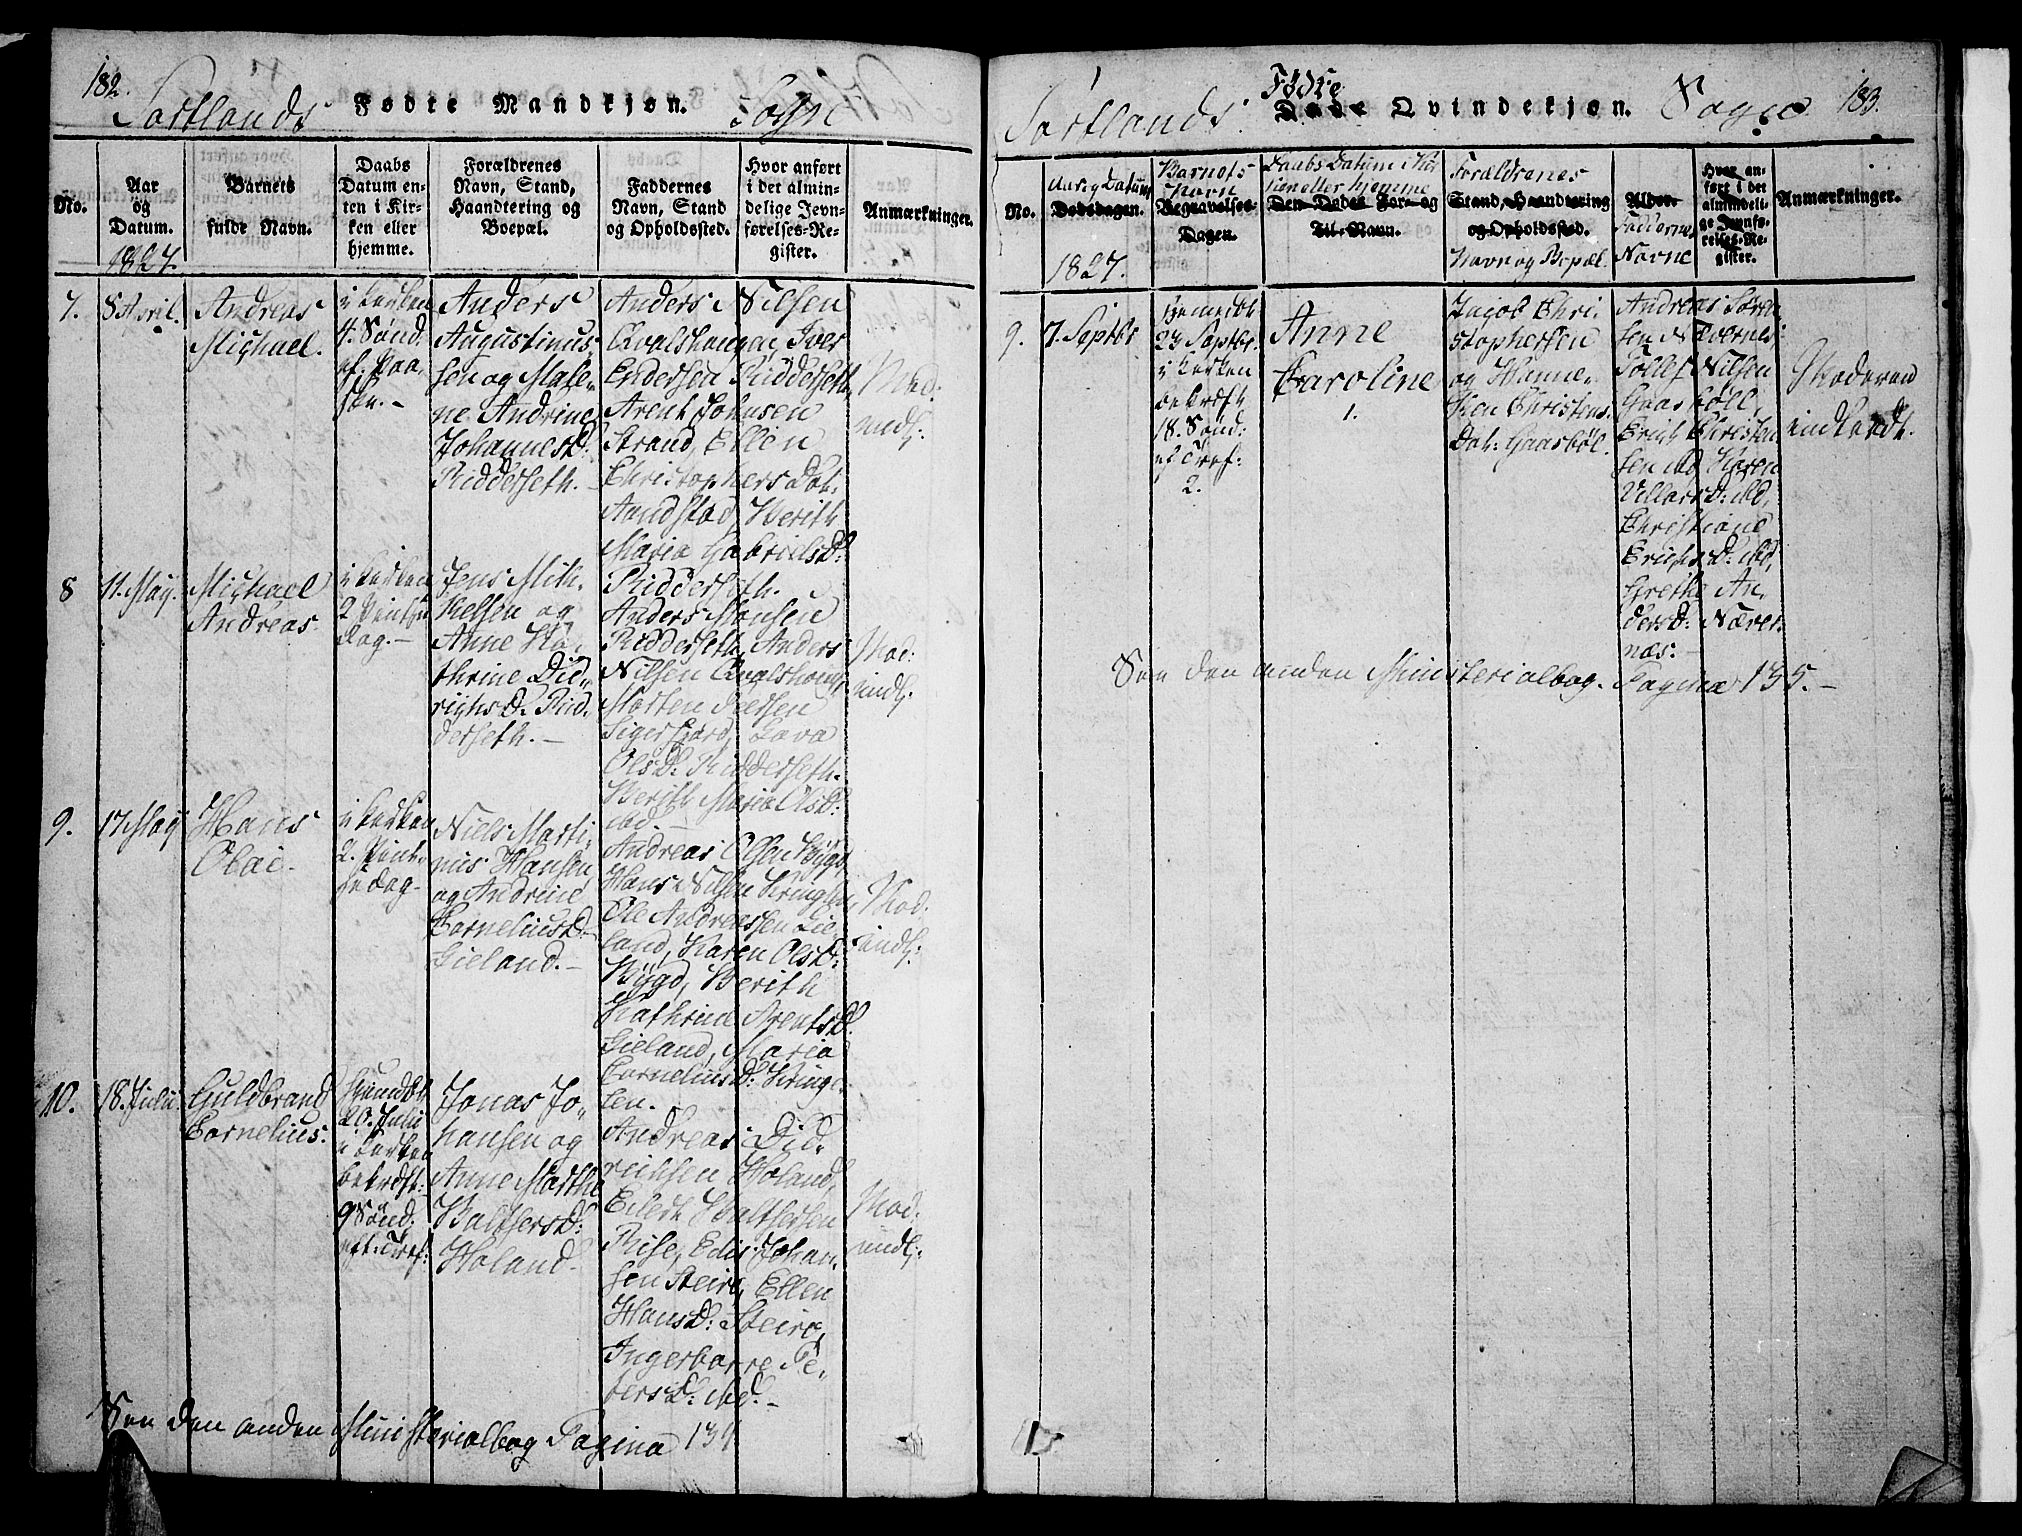 182.
Sortlands Fødte Mandkjøn. Sogn
No.
Aar
og
Datum.
1827.
Barnets
fulde Navn.
Daabs
Datum en-
ten i Kir-
ken eller
hjemme.
Forældrenes
Navn, Stand,
Haandtering og
Boepæl.
Faddernes
Navn, Stand
og Opholdssted.
Hvor anført
i det almin-
delige Jevn-
førelses-Re-
gister.
Anmærkninger.
7.
8 April.
Andreas
Michael.
i Kirken
4. Sönd.
ef. Paa-
ske. -
Anders
Augustinus
sen og Male-
ne Andrine
Johannesd:
Ridderseth. -
Anders Nilsen
Qvalshougen, Iver
Endersen Ridderseth,
Arent Johnsen
Strand, Ellen
Christophers Dat:
Aandstad, Berith
Maria Gabrielsd:
Ridderseth.
Mod:
indl:
8
11. May.
Michael
Andreas.
i Kirken
2 Pintse
dag. -
Jens Mik-
kelsen og
Anne Ka-
thrine Did-
richsd. Rid-
derseth. -
Anders Monsen
Ridderseth, Anders
Nilsen Qvalshoug,
Morten Peersen
Sigerfjord, Lava
Olsd: Ridderseth.
Berith Maria Olsd:
ibd. -
Mod:
indl:
9.
17 May
Hans
Olai.
i Kirken
2. Pint-
sedag -
Niels Marti-
nus Hansen
og Andrine
Corneliusd.
Lieland. -
Andreas Olsen Bÿgd,
Hans Nilsen Kringlen,
Ole Andreassen Lie-
land, Karen Olsd:
Bÿgd, Berith
Kathrine Arentsd.
Lieland, Maria
Corneliusd: Kring-
len.
Mod:
indl:
10.
18. Julii
Guldbrand
Cornelius.
hjemdbt
20. Julii
i Kirken
bekræft.
9 Sönd:
eft. Tref:
Jonas Jo-
hansen og
Anne Marthe
Balthersd:
Holand.
Andreas Did-
richsen Holand,
Eilert Balthersen
Rise, Edis Johan-
sen Steire, Ellen
Hansd: Steire,
Ingerborre Pe-
tersd: ibd. -
Mod:
indl:
See den anden Ministerialbog Pagina 134
Sortlands Fødte Døde Qvindekjøn. Sogn 183.
No.
Aar og Datum
Dødsdagen.
1827.
Barnets
Navn
Begravelses-
Dagen.
Daabs Datum i Kir-
ken eller hjemme
Den Dødes For- og
Til-Navn.
Forældrenes
Stand, Haandtering
og Opholdssted.
Navn og Bopæl.
Alder.
Faddernes
Navne
Hvor an-
ført i det
almindeli-
ge Jevnfø-
relses-Re-
gister.
Anmærkninger.
9.
7. Septbr
hjemdbt
24 Septbr.
i Kirken
bekræft
18. Sönd:
ef Tref:
2.
Anne
Caroline
1.
Jacob Chri-
stophersen
og Hanne-
ken Christens
Dat: Gaasböl.
Andreas Sören-
sen Nævernes
Tollef Nilsen
Gaasböll,
Erich Christen
sen ibd, Karen
Villarsd: ibd,
Christiane
Erichsd: ibd,
Grethe An-
dersd: Næver-
næs. -
Moderen
indledt.
See den anden Ministerialbog. Pagina 135. -